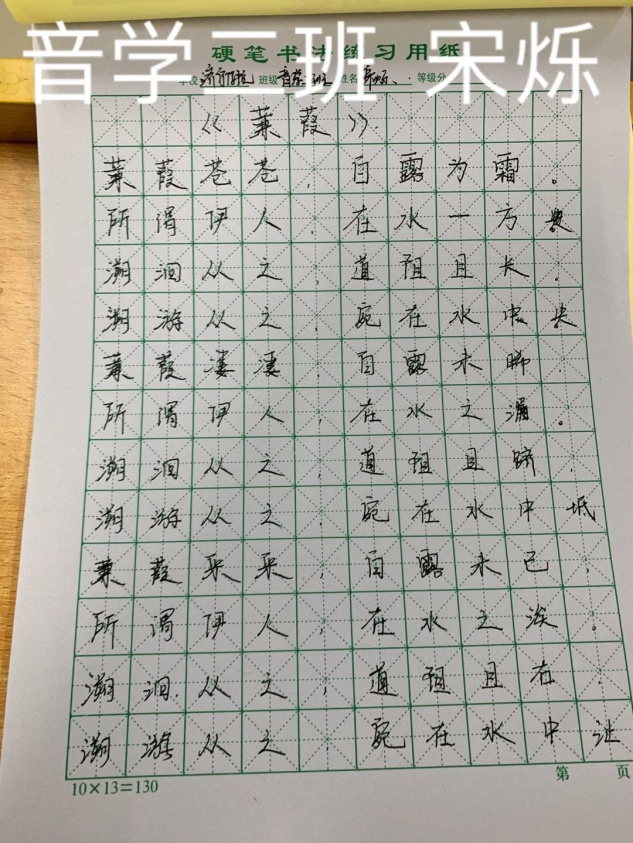 音学二班 宋烁
硬笔书法练习用纸
学校 班级 音学二班 姓名 宋烁 等级分
《蒹葭》
蒹葭苍苍，白露为霜。
所谓伊人，在水一方
溯洄从之，道阻且长。
溯游从之，宛在水中央
蒹葭凄凄，白露未晞
所谓伊人，在水之湄。
溯洄从之，道阻且跻，
溯游从之，宛在水中坻
蒹葭采采，白露未已，
所谓伊人，在水之涘。
溯洄从之，道阻且右
溯游从之，宛在水中沚
10×13=130
第 页